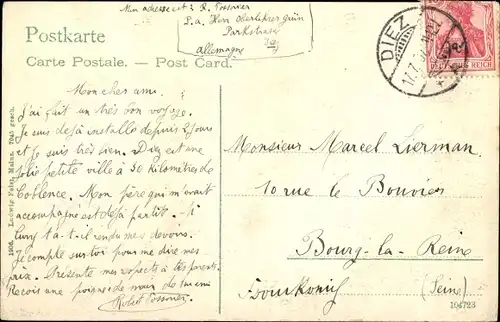 Mon adresse est : R. Possonier
P.a. Herr Oberlehrer Grün
Parkstrasse
Diez
Allemagne
Postkarte
Carte Postale. — Post Card.
DIEZ
17.7.
DEUTSCHES REICH
Mon cher ami.
J'ai fait un très bon voyage.
Je suis déjà installé depuis 2 jours
et je suis très bien. Diez est une
jolie petite ville à 50 kilomètres de
Coblence. Mon père qui m'avait
accompagné est déjà partit. Si
t-il rendu mes devoirs.
Je compte sur toi pour me dire mes
prix. Présente mes respects à tes parents.
Reçois une poignée de main de ton ami
Robert Possonier
1906. Ludwig Feist, Mainz. 7045 gesch.
Monsieur Marcel Lierman
10 rue le Bouvier
Bourg-la-Reine
(Seine)
Frankreich
104723